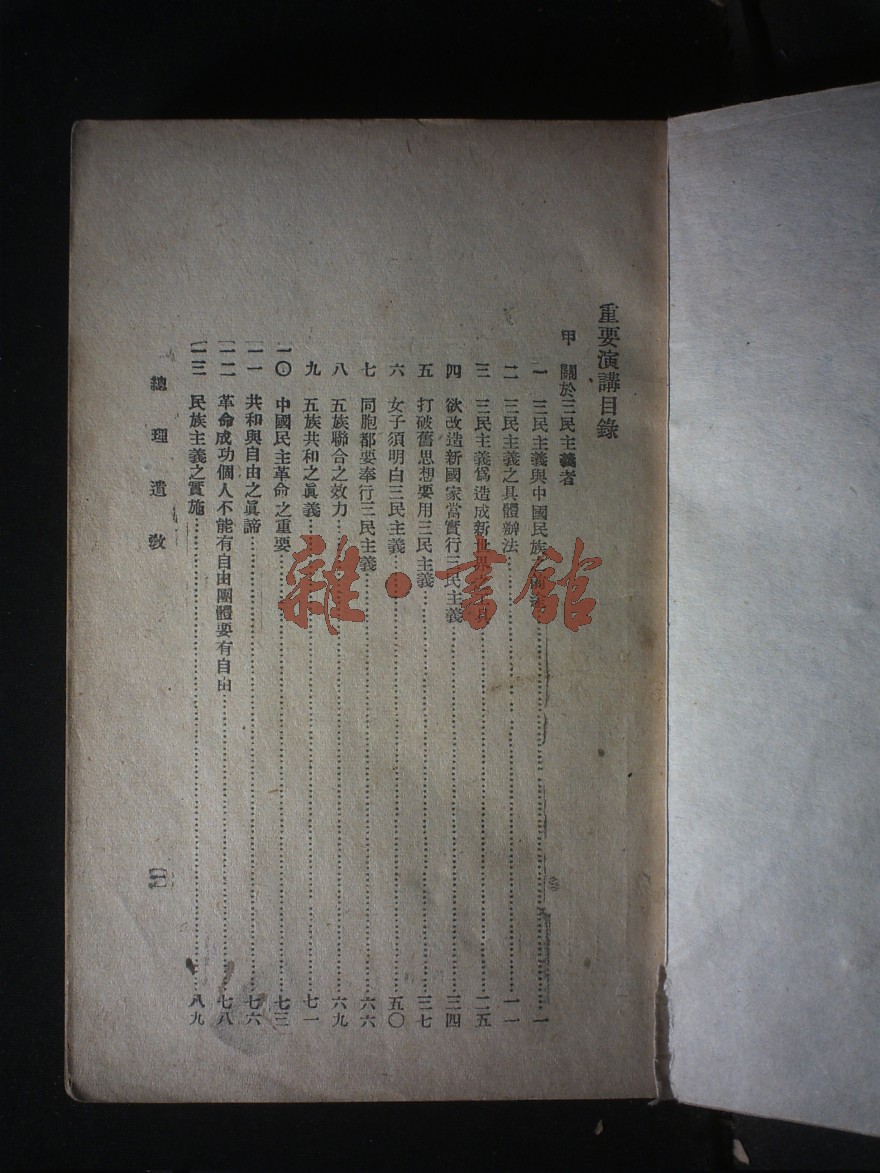 重要演講目錄
甲 關於三民主義者
一 三民主義與中國民族之前途……一
二 三民主義之具體辦法……一一
三 三民主義爲造成新世界之工具……二五
四 欲改造新國家當實行三民主義……三四
五 打破舊思想要用三民主義……三七
六 女子須明白三民主義……五〇
七 同胞都要奉行三民主義……六六
八 五族聯合之效力……六九
九 五族共和之眞義……七一
一〇 中國民主革命之重要……七三
一一 共和與自由之眞諦……七六
一二 革命成功個人不能有自由團體要有自由……七八
一三 民族主義之實施……八九
總理遺敎
〔一〕
雜·書館